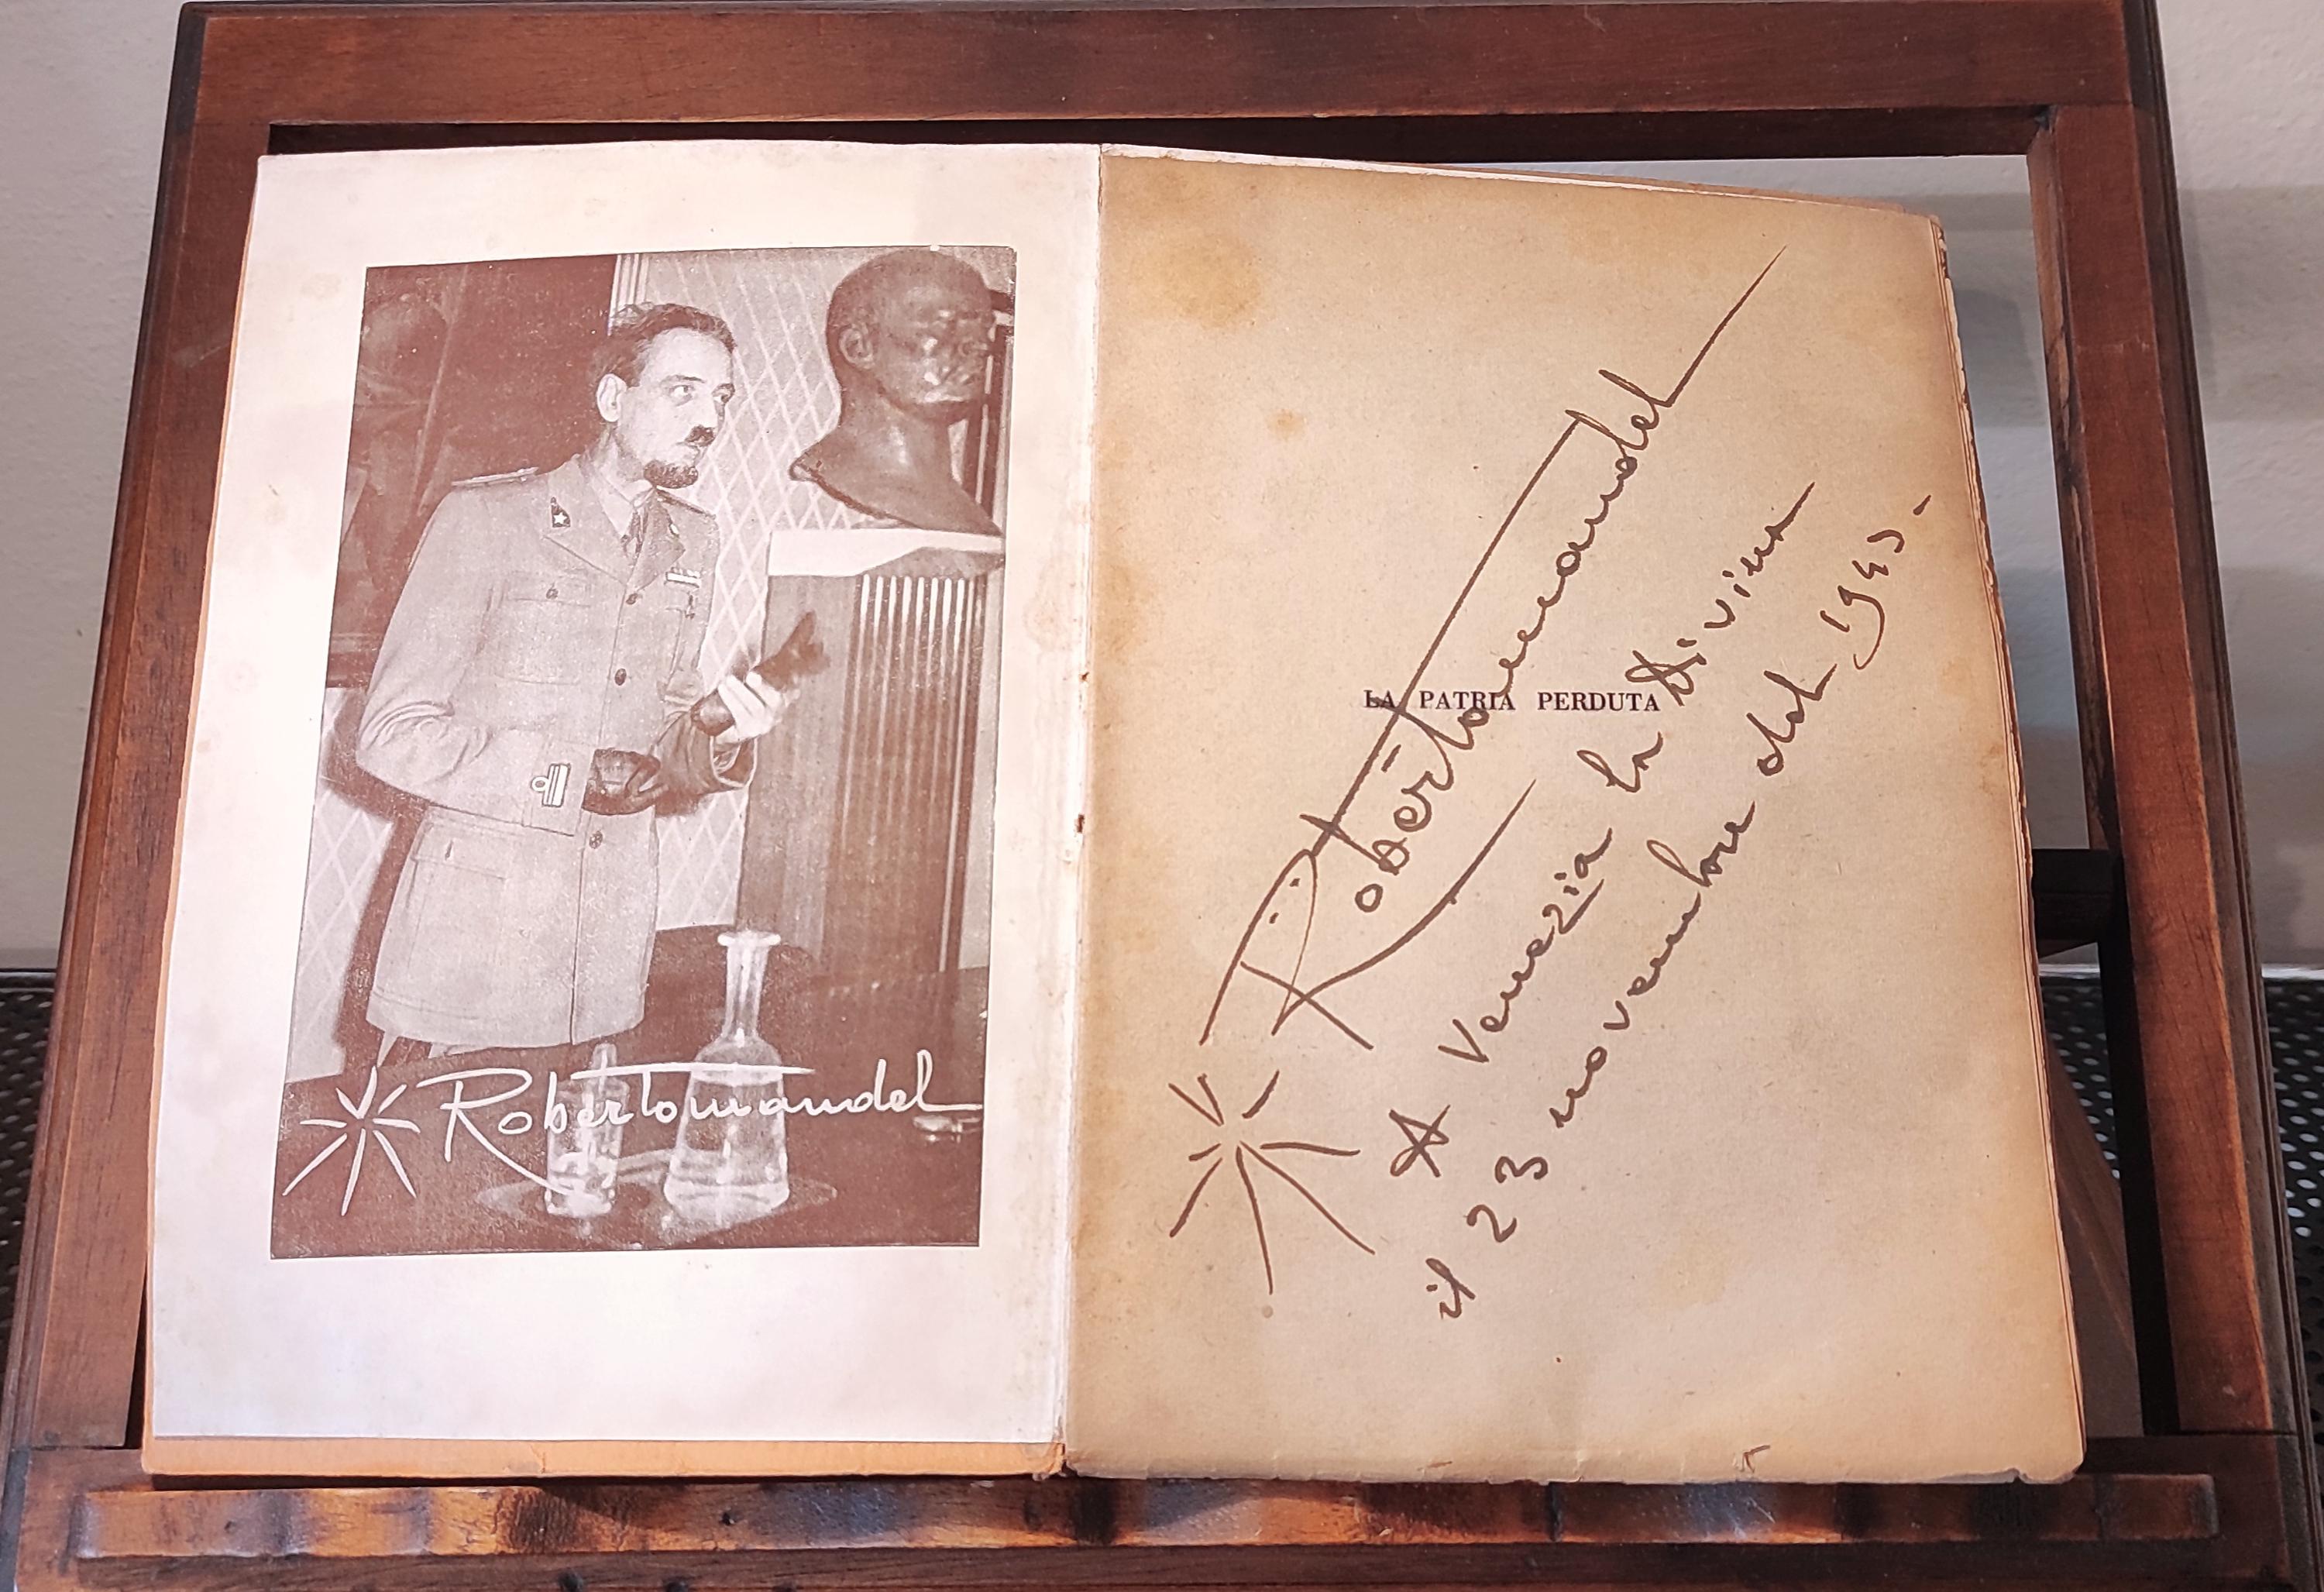 Robertomandel
LA PATRIA PERDUTA
Robertomandel
A Venezia la Divina
il 23 novembre del 1943.